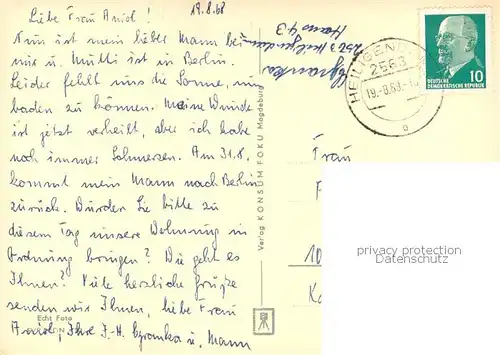 19.8.68
Liebe Frau Ariol!
Nun ist mein lieber Mann bei
mir u. Mutti ist in Berlin.
Leider fehlt uns die Sonne, um
baden zu können. Meine Wunde
ist jetzt verheilt, aber ich habe
noch immer Schmerzen. Am 31.8.
kommt mein Mann nach Berlin
zurück. Würden Sie bitte zu
diesem Tag unsere Wohnung in
Ordnung bringen? Wie geht es
Ihnen? Viele herzliche Grüße
senden wir Ihnen, liebe Frau
Ariol, Ihre u. Mann
Echt Foto
2563 Heiligendamm
Haus 43
Verlag KONSUM FOKU Magdeburg
HEILIGENDAMM
2563
19.-8.68.
b
DEUTSCHE
DEMOKRATISCHE REPUBLIK
10
Frau
F
10
K
privacy protection
Datenschutz